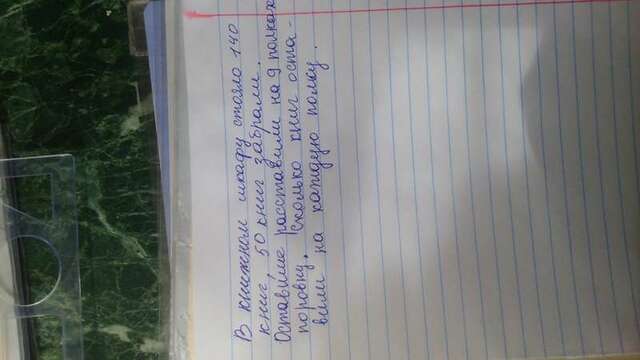 В книжном шкафу стояло 140
книг, 50 книг забрали.
Оставшие расставили на 9 полках
поровну. Сколько книг оста-
вили на каждую полку.